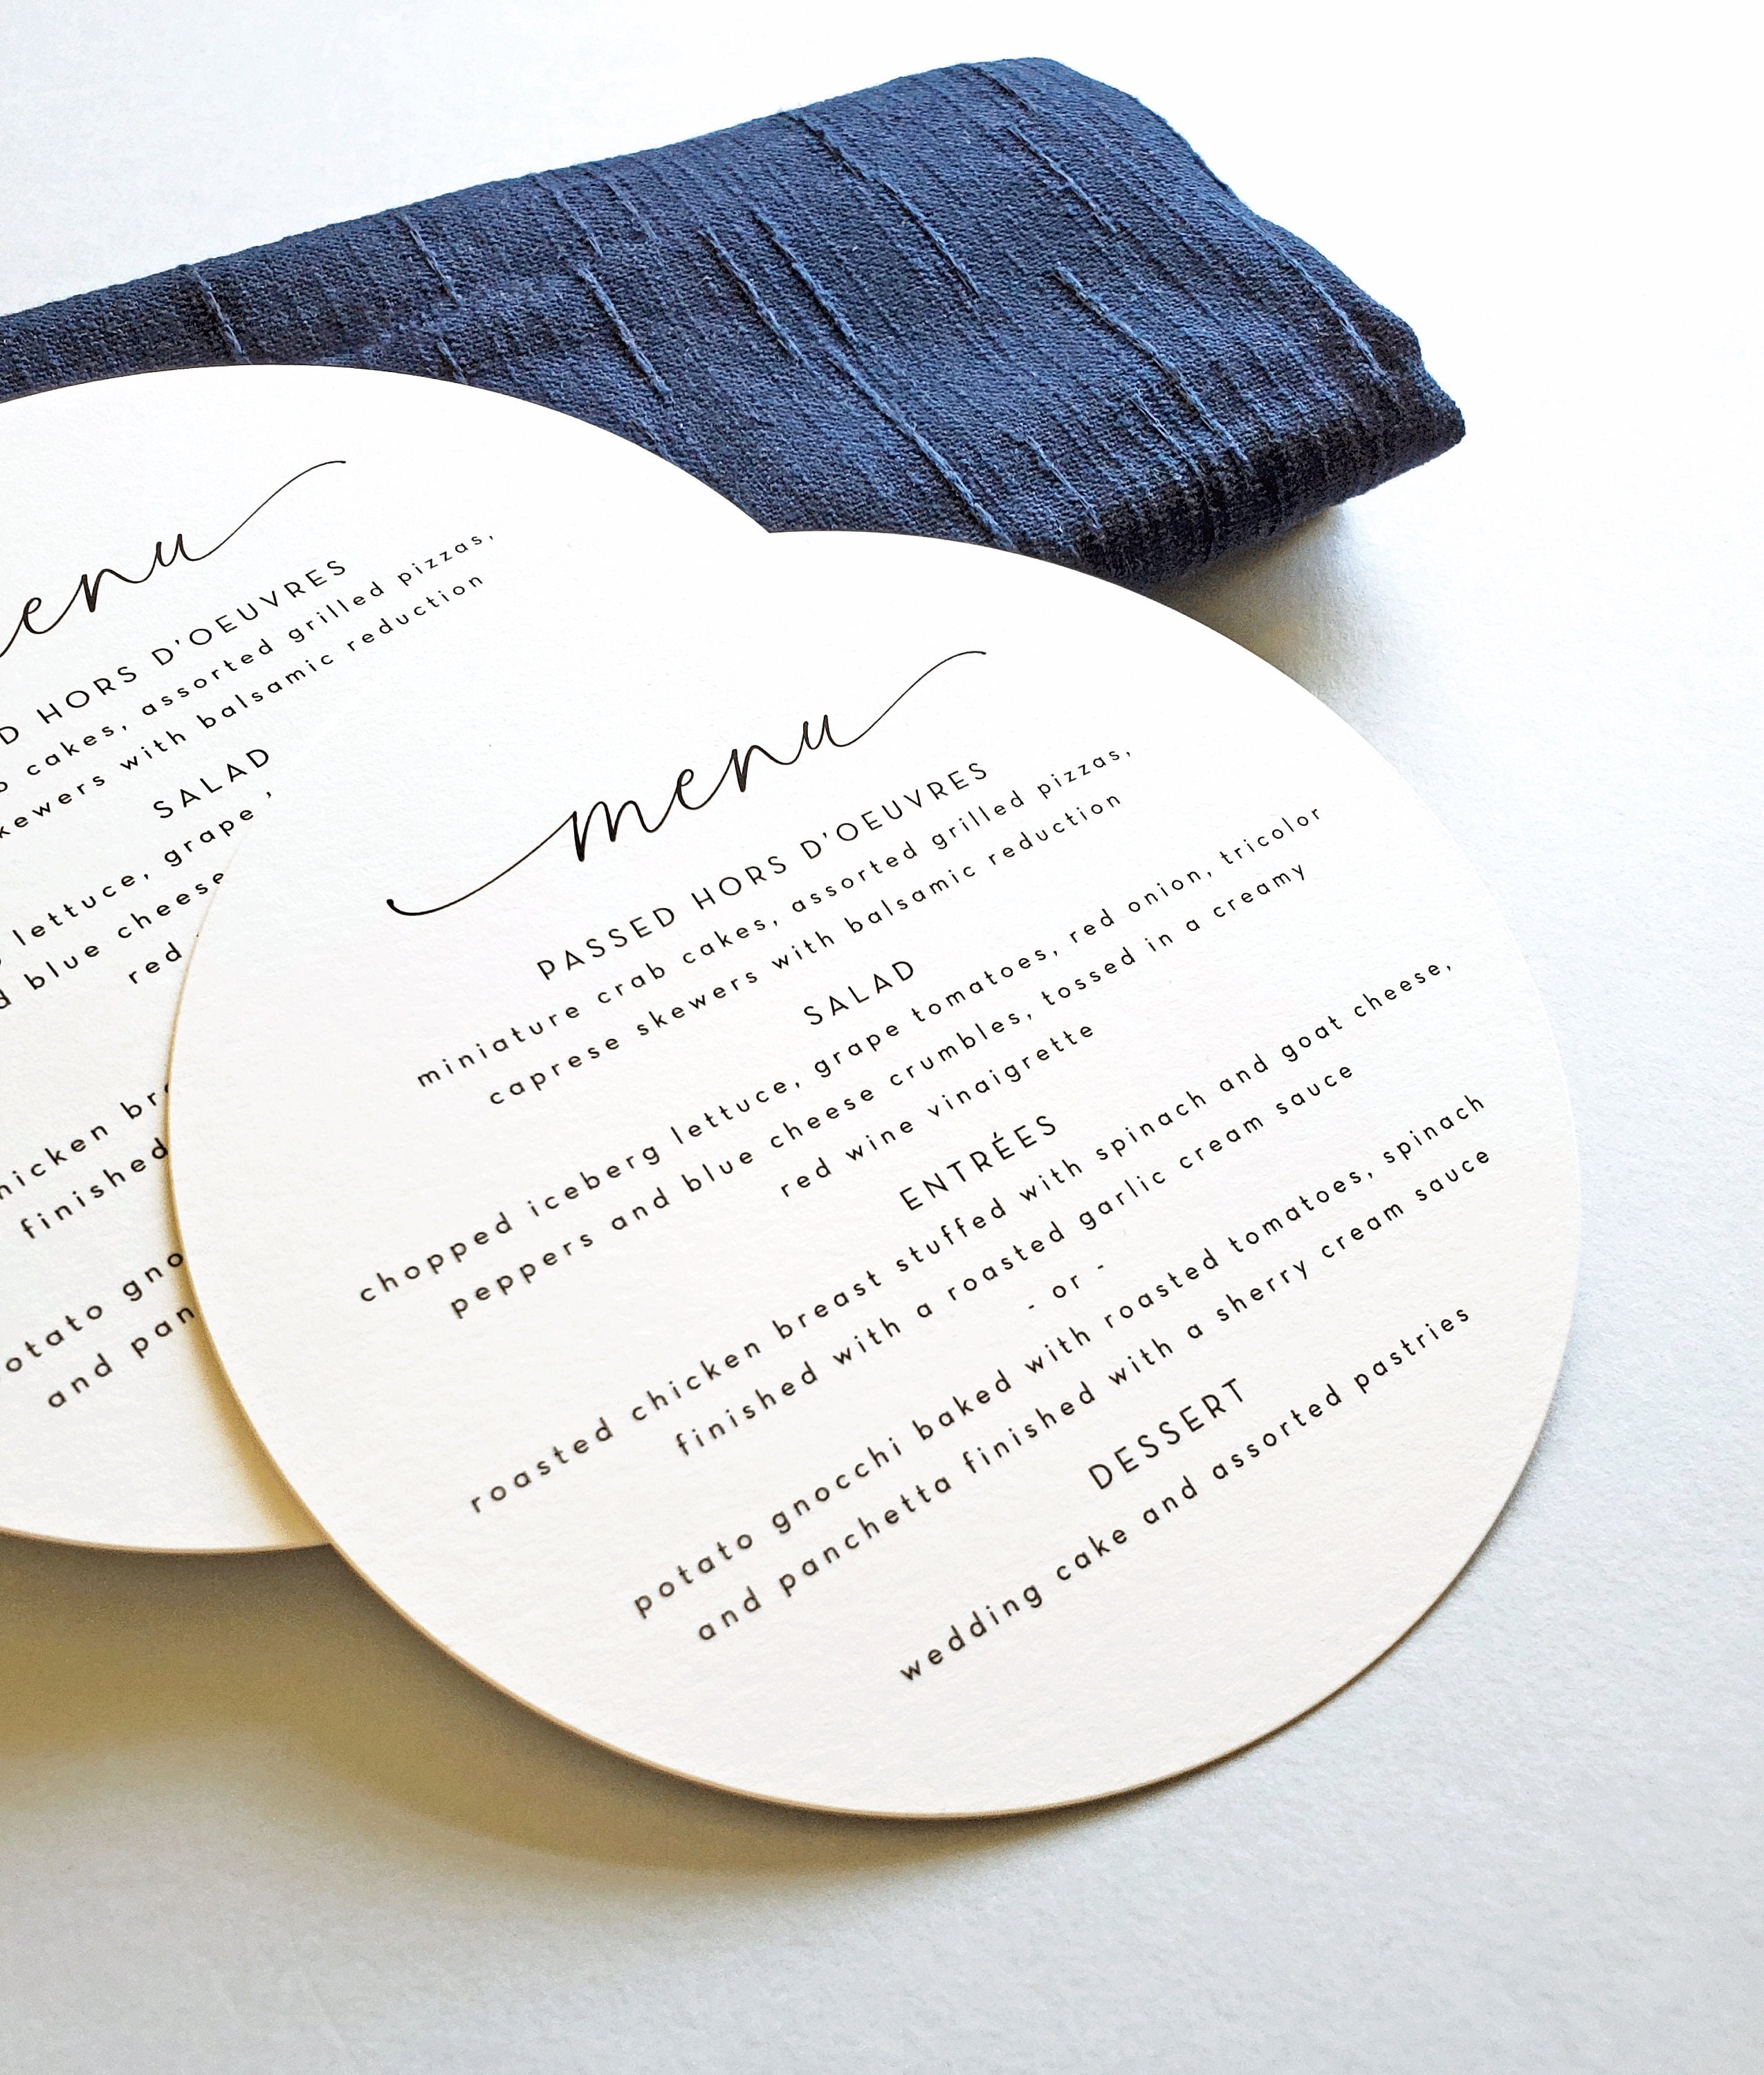 enu
D HORS D'OEUVRES
cakes, assorted grilled pizzas,
kewers with balsamic reduction
SALAD
lettuce, grape
blue cheese
red
hicken
finished
otato
and
menu
PASSED HORS D'OEUVRES
miniature crab cakes, assorted grilled pizzas,
caprese skewers with balsamic reduction
SALAD
chopped iceberg lettuce, grape tomatoes, red onion, tricolor
peppers and blue cheese crumbles, tossed in a creamy
red wine vinaigrette
ENTRÉES
roasted chicken breast stuffed with spinach and goat cheese,
finished with a roasted garlic cream sauce
- or -
potato gnocchi baked with roasted tomatoes, spinach
and panchetta finished with a sherry cream sauce
DESSERT
wedding cake and assorted pastries